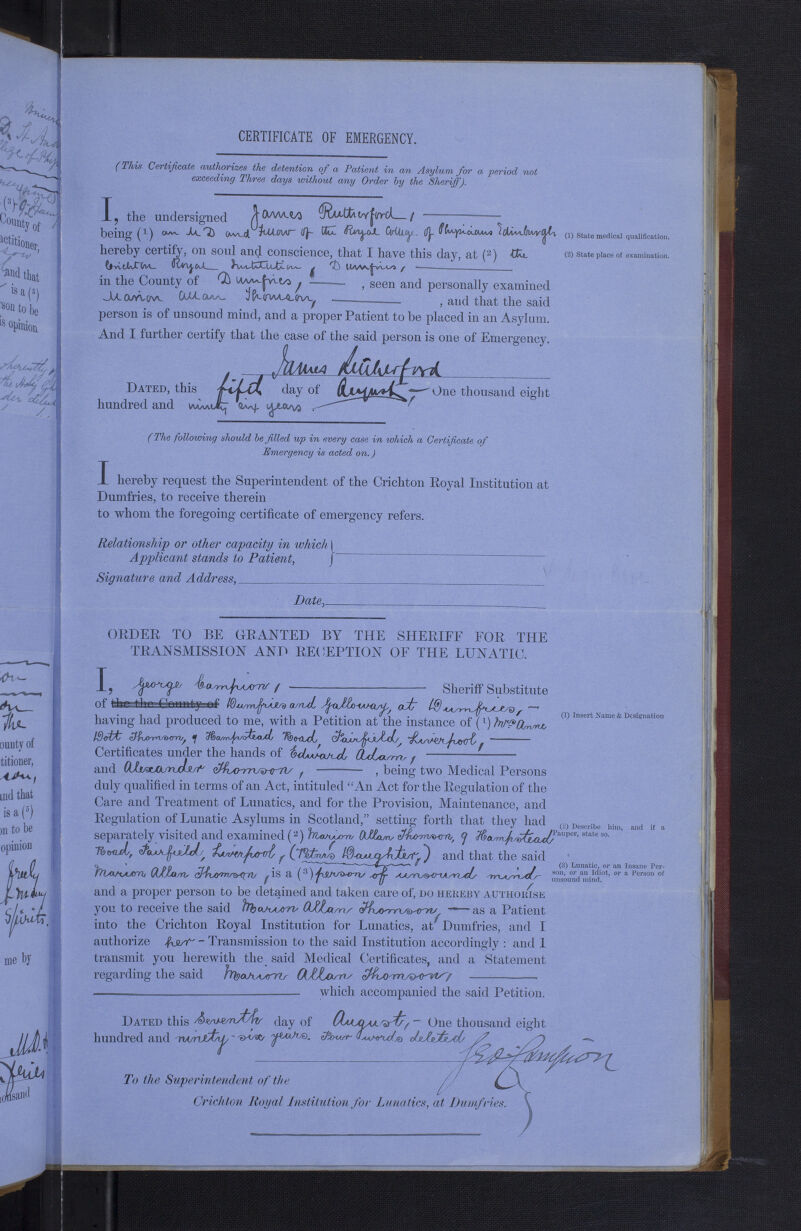 CERTIFICATE OF EMERGENCY.
(This Certificate authorizes the detention of a Patient in an Asylum for a period not
exceeding Three days without any Order by the Sheriff).
I, the undersigned James Rutherford,
being (1) an M D and Fellow of the Royal College of Physicians Edinburgh
(1) State medical qualification.
hereby certify, on soul and conscience, that I have this day, at (2) the
(2) State place of examination.
Crichton Royal Institution, Dumfries,
in the County of Dumfries, , seen and personally examined
Marion Allan Thomson, , and that the said
person is of unsound mind, and a proper Patient to be placed in an Asylum.
And I further certify that the case of the said person is one of Emergency.
James Rutherford
DATED, this fifth day of August One thousand eight
hundred and ninety six years.
(The following should be filled up in every case in which a Certificate of
Emergency is acted on.)
I hereby request the Superintendent of the Crichton Royal Institution at
Dumfries, to receive therein
to whom the foregoing certificate of emergency refers.
Relationship or other capacity in which
Applicant stands to Patient,
Signature and Address,
Date,
ORDER TO BE GRANTED BY THE SHERIFF FOR THE
TRANSMISSION AND RECEPTION OF THE LUNATIC.
I, George Campion, Sheriff Substitute
of the the County of Dumfries and Galloway, at Dumfries,
having had produced to me, with a Petition at the instance of (1) Mrs Anne
(1) Insert Name & Designation
Bott Thomson, 9 Hampstead Road, Fairfield, Liverpool,
Certificates under the hands of Edward Adam,
and Alexander Thomson, , being two Medical Persons
duly qualified in terms of an Act, intituled "An Act for the Regulation of the
Care and Treatment of Lunatics, and for the Provision, Maintenance, and
Regulation of Lunatic Asylums in Scotland," setting forth that they had
separately visited and examined (2) Marion Allan Thomson, 9 Hampstead
(2) Describe him, and if a
Pauper, state so.
Road, Fairfield, Liverpool, (Petnrs Daughter,) and that the said
Marion Allan Thomson, is a (3) person of unsound mind
(3) Lunatic, or an Insane Per-
son, or an Idiot, or a Person of
unsound mind.
and a proper person to be detained and taken care of, DO HEREBY AUTHORISE
you to receive the said Marion Allan Thomson, as a Patient
into the Crichton Royal Institution for Lunatics, at Dumfries, and I
authorize her - Transmission to the said Institution accordingly: and I
transmit you herewith the said Medical Certificates, and a Statement
regarding the said Marion Allan Thomson,
which accompanied the said Petition.
DATED this Seventh day of August, - One thousand eight
hundred and ninety-six years. Four words deleted
Geo. Campion
To the Superintendent of the
Crichton Royal Institution for Lunatics, at Dumfries.
County of
and that
is a (3)
son to be
is opinion
The
ounty of
titioner,
and that
is a (3)
on to be
opinion
freely
Spirits.
me by
M.D.